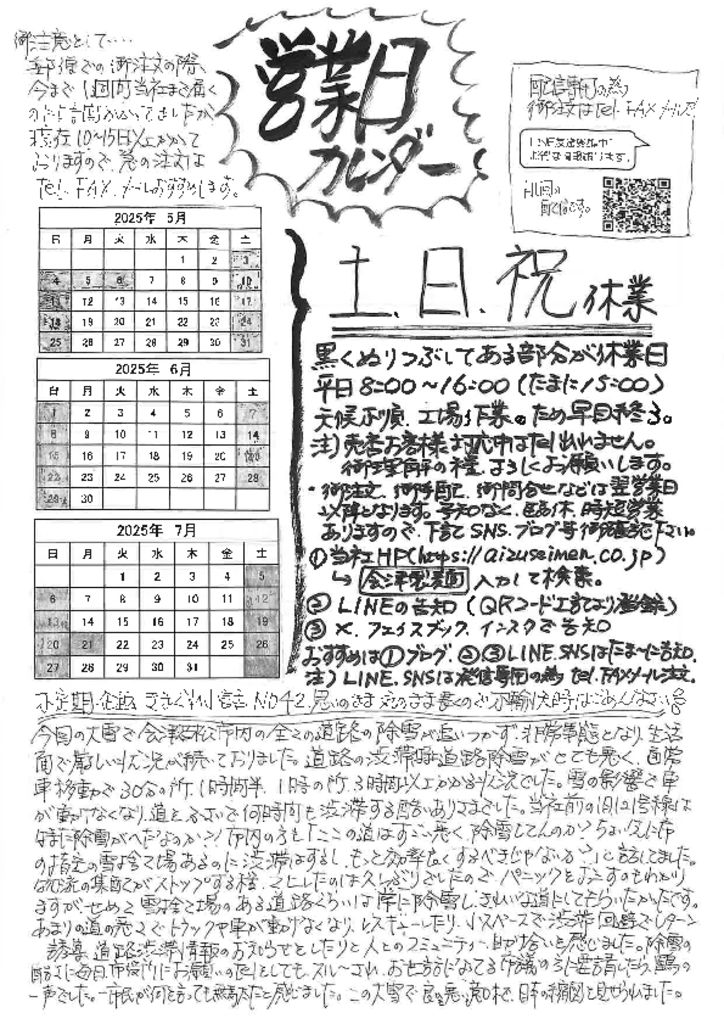 御注意として....
郵便での御注文の際、
今まで1週間当社まで届く
のに時間かかってましたが
現在10~15日以上かかって
おりますので、急の注文は
Tel. FAX. メールおすすめします。
営業日
カレンダー
配信専門の為
御注文はTel. FAX メールで
LINE友達募集中
お得な情報届きます。
HP同の
配信です。
2025年 5月
日 月 火 水 木 金 土
1 2 3
4 5 6 7 8 9 10
11 12 13 14 15 16 17
18 19 20 21 22 23 24
25 26 27 28 29 30 31
2025年 6月
日 月 火 水 木 金 土
1 2 3 4 5 6 7
8 9 10 11 12 13 14
15 16 17 18 19 20 21
22 23 24 25 26 27 28
29 30
2025年 7月
日 月 火 水 木 金 土
1 2 3 4 5
6 7 8 9 10 11 12
13 14 15 16 17 18 19
20 21 22 23 24 25 26
27 28 29 30 31
土.日.祝 休業
黒くぬりつぶしてある部分が休業日
平日8:00~16:00(たまに15:00)
天候不順、工場作業のため早目終る。
注)売店お客様対応中はTel出れません。
御理解の程、よろしくお願いします。
・御注文、御手配、御問合せなどは翌営業日
以降となります。予知なく、臨休、時短営業
ありますので、下記SNS、ブログ等御確認下さい。
①当社HP(https://aizuseimen.co.jp)
↳ 会津製麺 入力して検索。
②LINEの告知(QRコード上記より登録)
③X、フェイスブック、インスタで告知
おすすめは①ブログ。②③LINE.SNSはたま~に告知。
注)LINE、SNSは発信専門の為 Tel.FAXメール注文。
不定期企画 No42. 思いのまま 書くので
今回の大雪で会津若松市内の全ての道路の除雪が追いつかず、非常事態となり、生活
面で厳しい状況が続いておりました。道路の渋滞は道路除雪がとても悪く、通常
車移動で30分の所、1時間半、1時間の所、3時間以上かかる状況でした。雪の影響で車
が動けなくなり、道をふさいで何時間も渋滞する酷いありさまでした。当社前の旧121号線は
なぜに除雪がへたなのか?市内の方も「ここの道はすごい悪く、除雪してんのか?
の指定の雪捨て場あるのに渋滞はするし、もっと効率良くするべきじゃないか?」と話してました。
物流の集配がストップする程、マヒしたのは久しぶりでしたのでパニックをおこすのもわかり
ますが、せめて雪捨て場のある道路くらいは常に除雪し、きれいな道にしてもらいたかったです。
あまりの道の悪さでトラックや車が動けなくなり、レスキューしたり、小スペースで渋滞回避でUターン
誘導、道路渋滞情報のお知らせをしたりと人とのコミュニティー、助け合いを感じました。除雪の
一声でした。一市民が何を言っても無駄だと感じました。この大雪で良い悪い含めて、日本の縮図を見せられました。